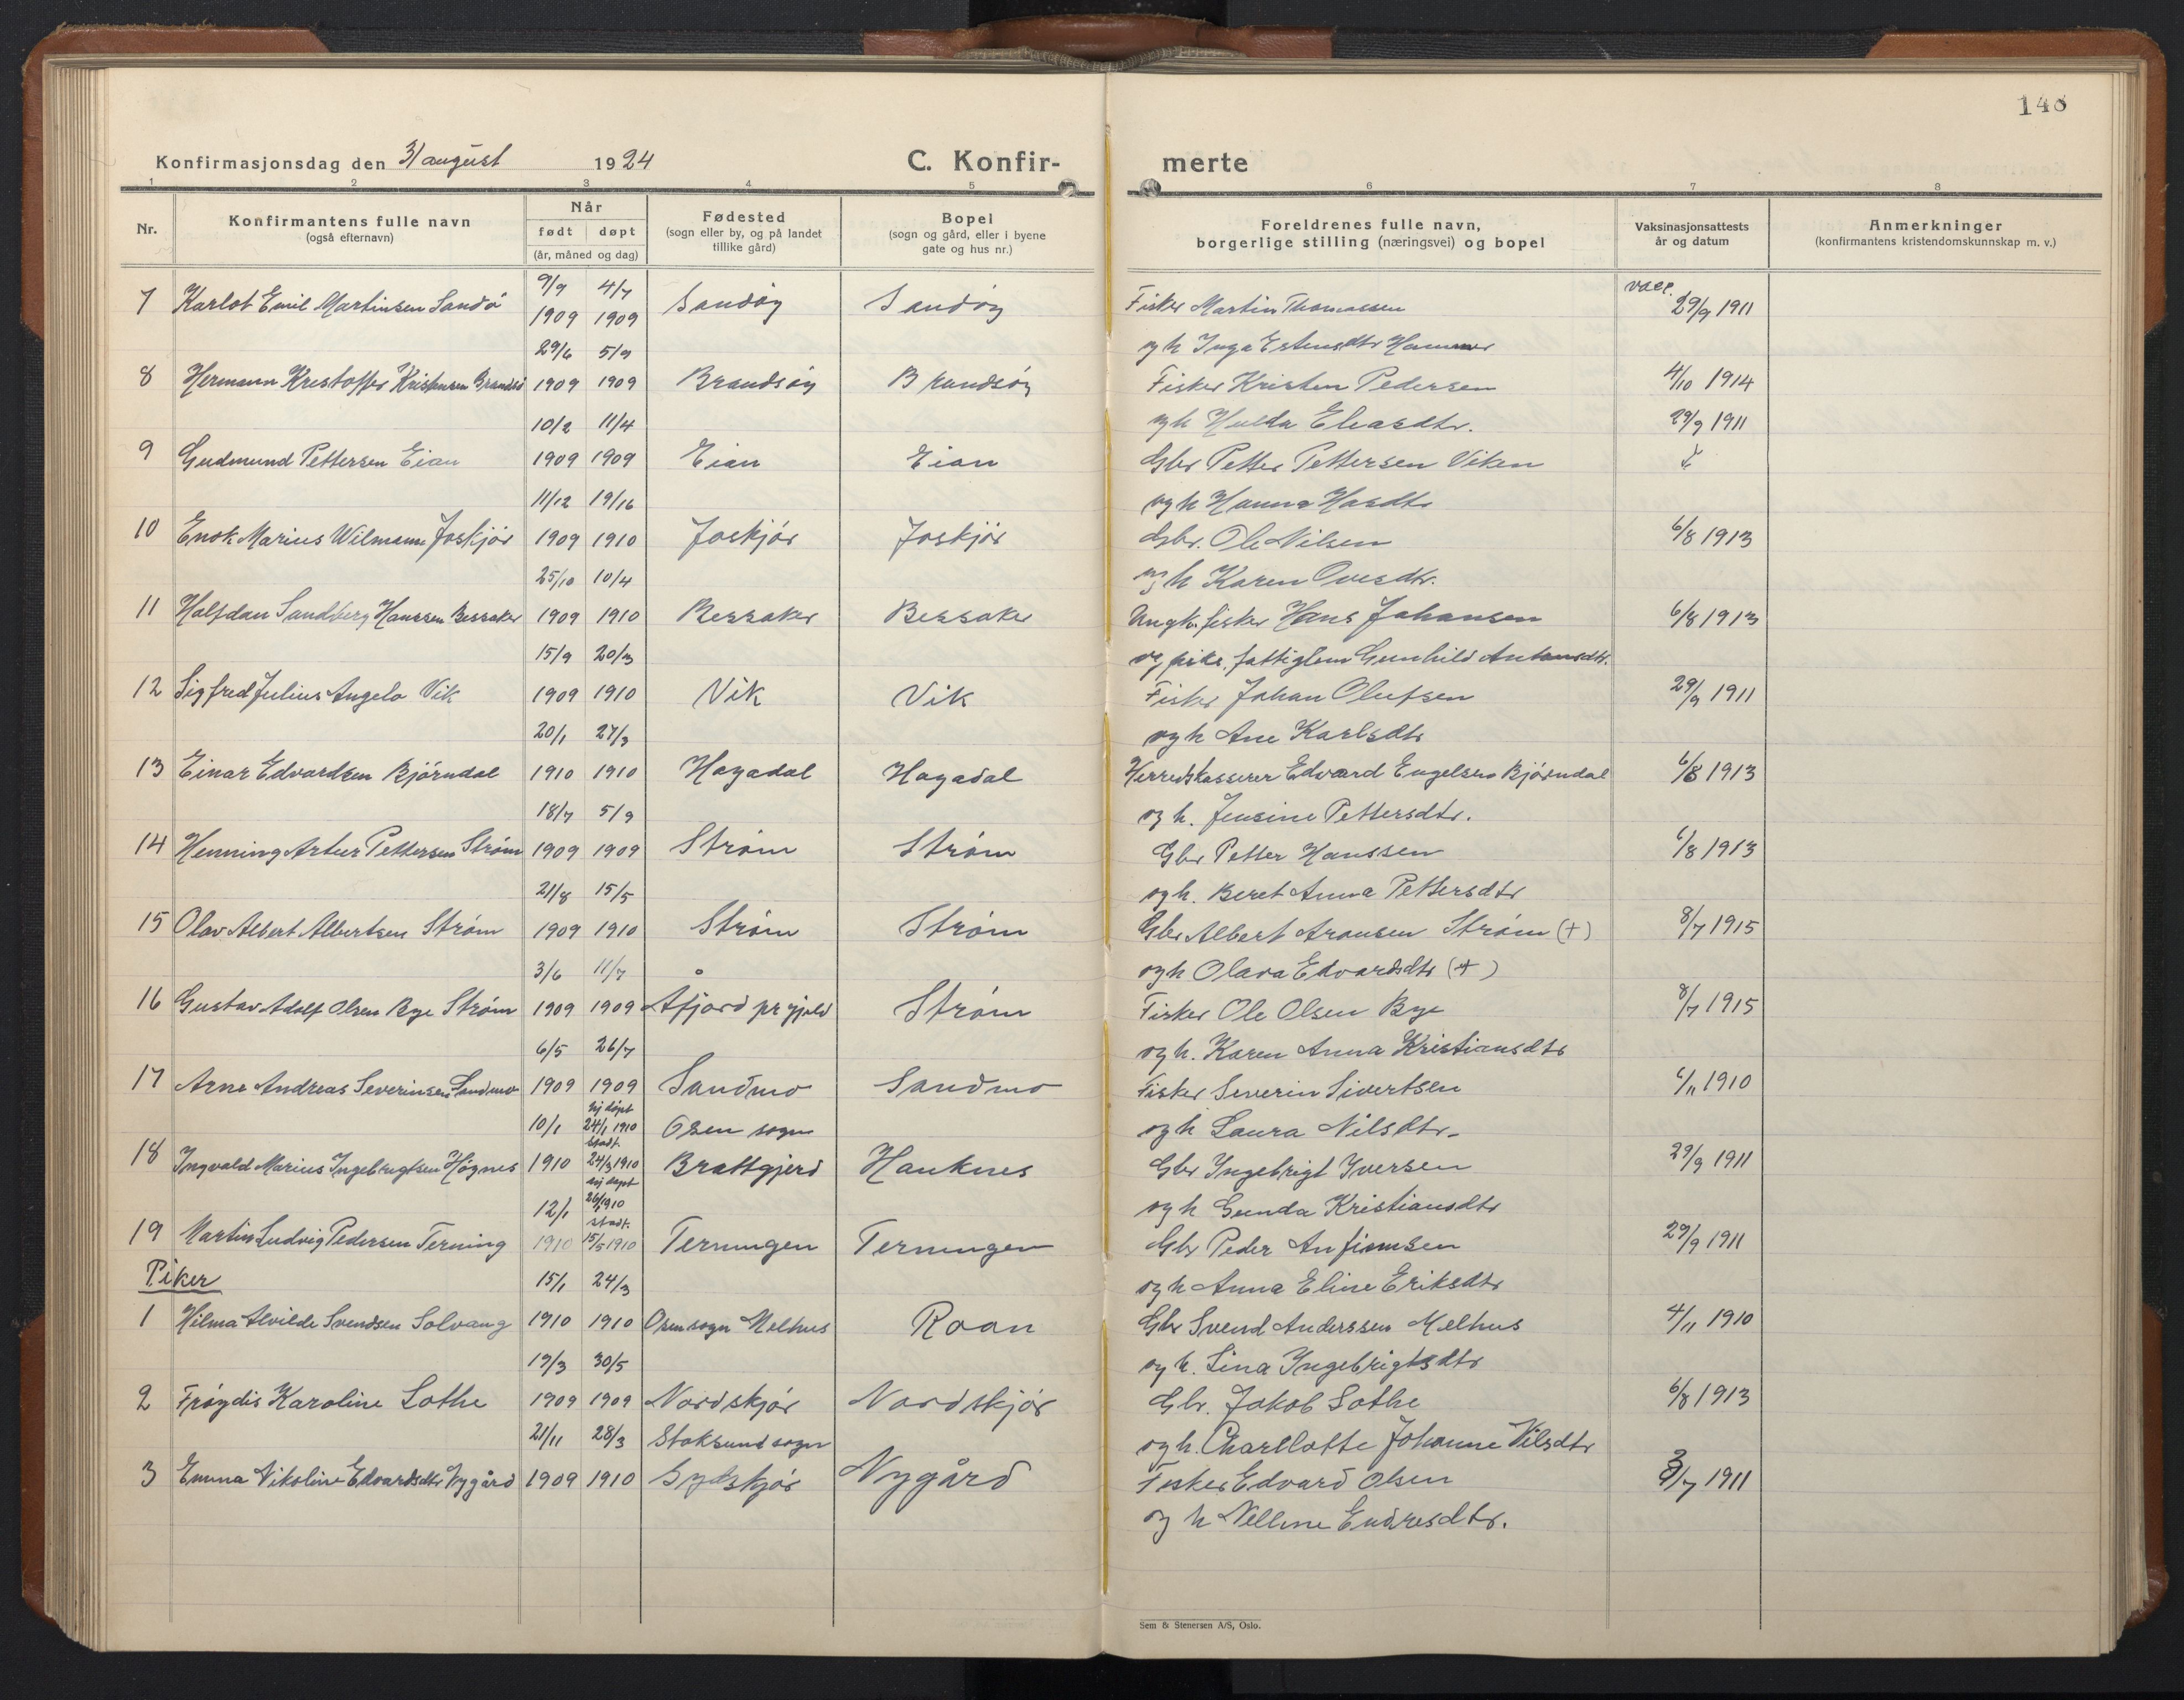 148
Konfirmasjonsdag den 31 august 1924
C. Konfir-
merte
1 2 3 4 5 6 7 8
Nr.
Konfirmantens fulle navn
(også efternavn)
Når
født døpt
(år, måned og dag)
Fødested
(sogn eller by, og på landet
tillike gård)
Bopel
(sogn og gård, eller i byene
gate og hus nr.)
Foreldrenes fulle navn,
borgerlige stilling (næringsvei) og bopel
Vaksinasjonsattests
år og datum
Anmerkninger
(konfirmantens kristendomskunnskap m. v.)
4/7 vacc.
7 Karlot Emil Martinsen Sandö 1909 1909 Sandöy Sandöy Fisker Martin Thomassen 29/9 1911
29/6 5/9 og h Inga Estensdtr Hammer
8 Hermann Krestoffer Kristensen Brandsö 1909 1909 Brandsöy Brandsöy Fisker Kristen Pedersen 4/10 1914
10/2 11/4 og h Hulda Eliasdtr. 29/9 1911
9 Gudmund Pettersen Eian 1909 1909 Eian Eian Gbr Petter Pettersen Viken
11/12 19/16 og h Hanna
10 Enok Marius Wilmann Joskjör 1909 1910 Joskjör Joskjör Gbr. Ole Nilsen 6/8 1913
25/10 10/4 og h Karen Ovesdtr.
11 Halfdan Sandberg Hanssen Bessaker 1909 1910 Bessaker Bessaker Ungk. fisker Hans Johansen 6/8 1913
15/9 20/3 og pike, fattiglem Gunhild Antonsdtr.
12 Sigfred Julius Angelo Vik 1909 1910 Vik Vik Fisker Johan Olufsen 29/9 1911
20/1 27/3 og h Ane Karlsdtr
13 Einar Edvardsen Bjørndal 1910 1910 Hagadal Hagadal Herredskasserer Edvard Engelsen Bjørndal 6/8 1913
18/7 5/9 og h. Jensine Pettersdtr.
14 Henning Artur Pettersen Ström 1909 1909 Ström Ström Gbr Petter Hanssen 6/8 1913
21/8 15/5 og h. Beret Anna Pettersdtr
15 Olav Albert Albertsen Ström 1909 1910 Ström Ström Gbr Albert Aronsen Ström (+) 8/7 1915
3/6 11/7 og h Olava Edvardsdtr (+)
16 Gustav Adolf Olsen Bye Ström 1909 1909 Åfjord prgjeld Ström Fisker Ole Olsen Bye 8/7 1915
6/5 26/7 og h. Karen Anna Kristiansdtr
17 Arne Andreas Severinsen Sandmo 1909 1909 Sandmo Sandmo Fisker Severin Sivertsen 6/11 1910
10/1 hj døpt 24/1 1910 Osen sogn og h Laura Nilsdtr.
18 Ingvald Marius Ingebrigtsen Högnes 1910 stadf. 24/3 1910 Brattgjerd Hauknes Gbr Ingebrigt Iversen 29/9 1911
12/1 hj døpt 26/1 1910 og h Gunda Kristiansdtr
19 Martin Ludvig Pedersen Terning 1910 stadf. 15/5 1910 Terningen Terningen Gbr Peder Anfinnsen 29/9 1911
Piker 15/1 24/3 og h Anna Eline Eriksdtr
1 Hilma Alvilde Svendsen Solvang 1910 1910 Osen sogn Melhus Roan Gbr Svend Anderssen Melhus 4/11 1910
19/3 30/5 og h. Lina Ingebrigtsdtr
2 Fröydis Karoline Sothe 1909 1909 Nordskjör Nordskjör Gbr. Jakob Sothe 6/8 1913
21/11 28/3 Stoksund sogn og h. Charllotte Johanne Nilsdtr
3 Emma Nikoline Edvardsdtr Nygård 1909 1910 Sydskjör Nygård Fisker Edvard Olsen 3/7 1911
og h Nelline Endresdtr.
Sem & Stenersen A/S, Oslo.